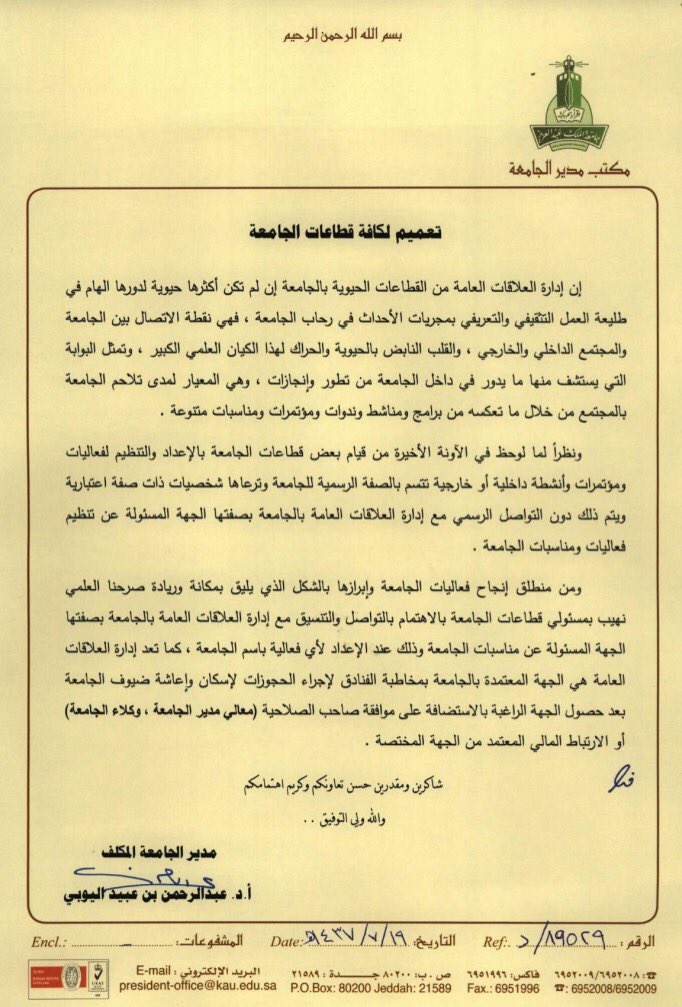 بسم الله الرحمن الرحيم
جامعة الملك عبدالعزيز
مكتب مدير الجامعة
تعميم لكافة قطاعات الجامعة
إن إدارة العلاقات العامة من القطاعات الحيوية بالجامعة إن لم تكن أكثرها حيوية لدورها الهام في
طليعة العمل التثقيفي والتعريفي بمجريات الأحداث في رحاب الجامعة ، فهي نقطة الاتصال بين الجامعة
والمجتمع الداخلي والخارجي ، والقلب النابض بالحيوية والحراك لهذا الكيان العلمي الكبير ، وتمثل البوابة
التي يستشف منها ما يدور في داخل الجامعة من تطور وإنجازات ، وهي المعيار لمدى تلاحم الجامعة
بالمجتمع من خلال ما تعكسه من برامج ومناشط وندوات ومؤتمرات ومناسبات متنوعة .
ونظراً لما لوحظ في الآونة الأخيرة من قيام بعض قطاعات الجامعة بالإعداد والتنظيم لفعاليات
ومؤتمرات وأنشطة داخلية أو خارجية تتسم بالصفة الرسمية للجامعة وترعاها شخصيات ذات صفة اعتبارية
ويتم ذلك دون التواصل الرسمي مع إدارة العلاقات العامة بالجامعة بصفتها الجهة المسئولة عن تنظيم
فعاليات ومناسبات الجامعة .
ومن منطلق إنجاح فعاليات الجامعة وإبرازها بالشكل الذي يليق بمكانة وريادة صرحنا العلمي
نهيب بمسئولي قطاعات الجامعة بالاهتمام بالتواصل والتنسيق مع إدارة العلاقات العامة بالجامعة بصفتها
الجهة المسئولة عن مناسبات الجامعة وذلك عند الإعداد لأي فعالية باسم الجامعة ، كما تعد إدارة العلاقات
العامة هي الجهة المعتمدة بالجامعة بمخاطبة الفنادق لإجراء الحجوزات لإسكان وإعاشة ضيوف الجامعة
بعد حصول الجهة الراغبة بالاستضافة على موافقة صاحب الصلاحية (معالي مدير الجامعة ، وكلاء الجامعة)
أو الارتباط المالي المعتمد من الجهة المختصة .
شاكرين ومقدرين حسن تعاونكم وكريم اهتمامكم
والله ولي التوفيق . .
مدير الجامعة المكلف
أ.د. عبدالرحمن بن عبيد اليوبي
الرقم : Ref: د/٨٩٥٢٩ التاريخ: Date: ١٤٣٧/٧/١٩هـ المشفوعات: - Encl.:
☎: ٦٩٥٢٠٠٩/٦٩٥٢٠٠٨ فاكس: ٦٩٥١٩٩٦ ص . ب: ٨٠٢٠٠ جـدة : ٢١٥٨٩ البريد الإلكتروني : E-mail
☎: 6952008/6952009 Fax.: 6951996 P.O.Box: 80200 Jeddah: 21589 president-office@kau.edu.sa